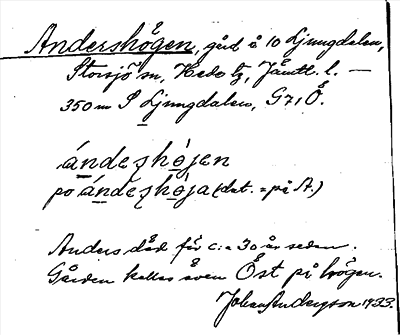 Andershögen, gård å 10 Ljungdalen,
Storsjö sn, Hede tg, Jämtl. l. —
350 m S Ljungdalen, G71 Ö.
ándeʂhø̱jen
po ándeʂhø̱ja (dat. = på A.)
Anders dåd för c:a 30 år sedan.
Gården kallas även Öst på högen.
Johan Anderson 1933.